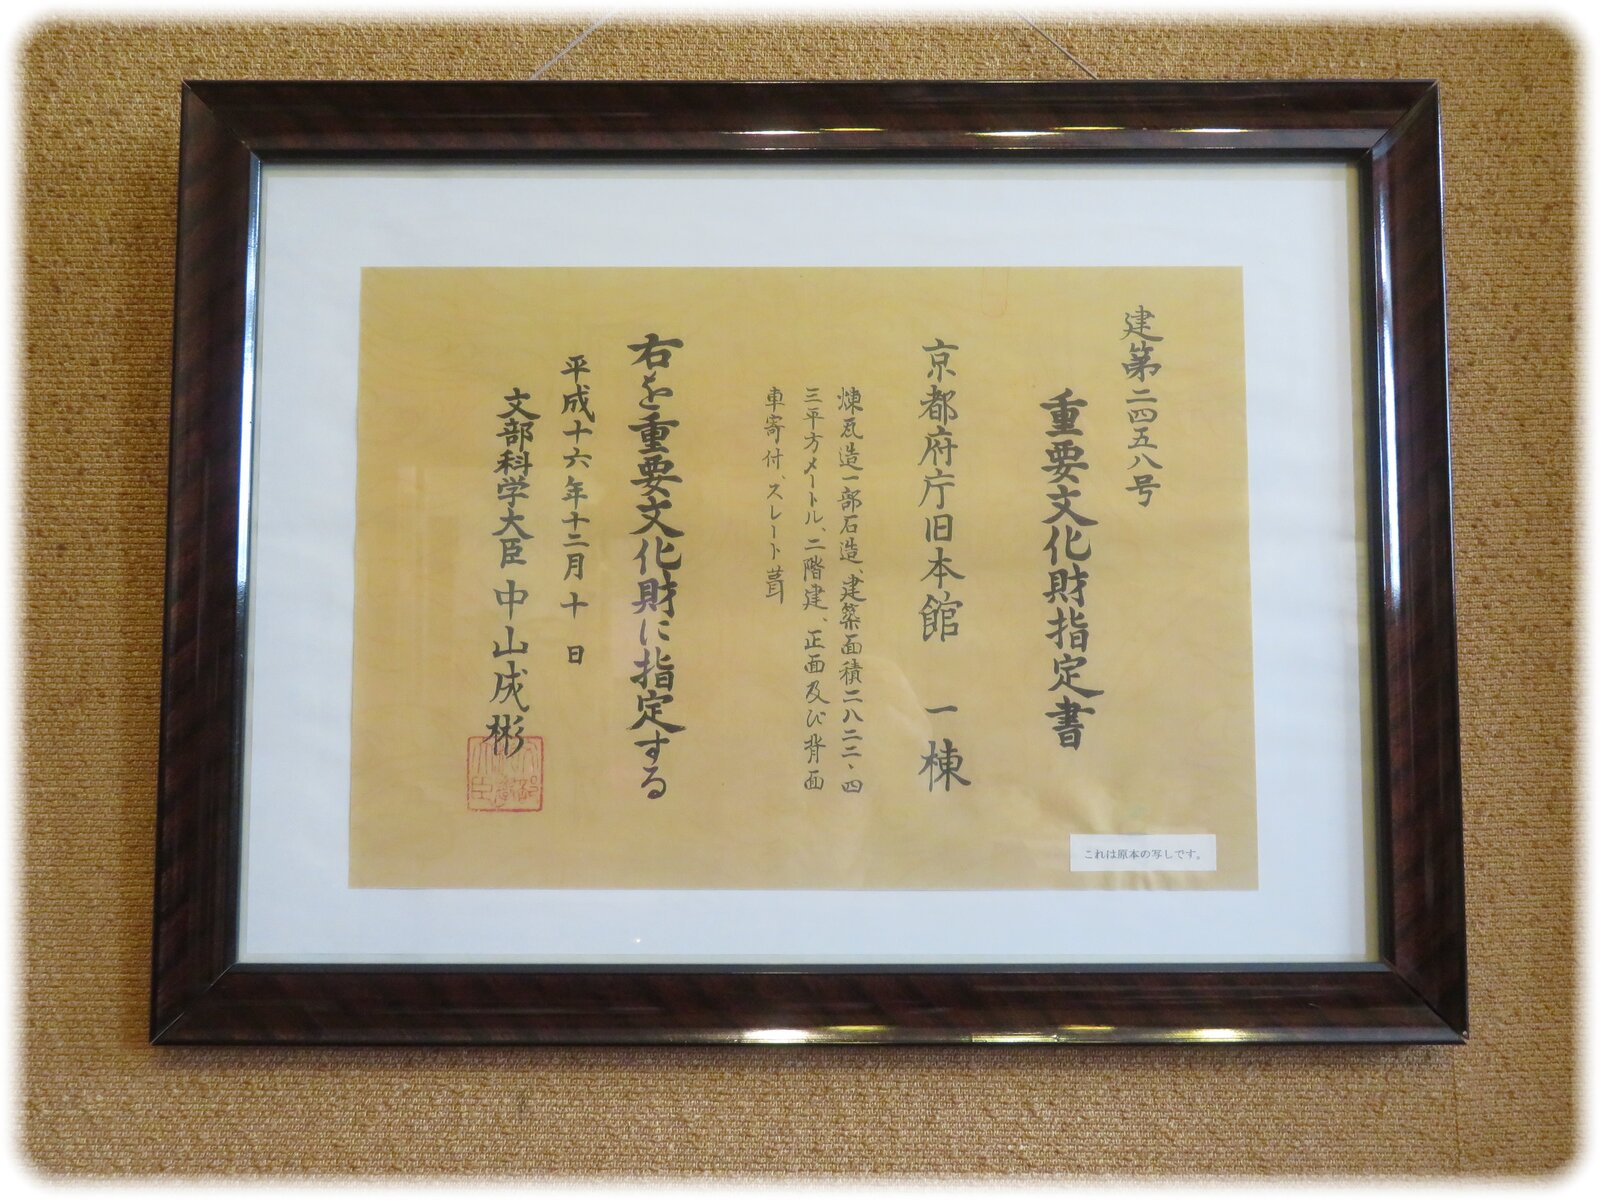 建第二四五八号
重要文化財指定書
京都府庁旧本館 一棟
煉瓦造一部石造、建築面積二八二二・四
三平方メートル、二階建、正面及び背面
車寄付、スレート葺
右を重要文化財に指定する
平成十六年十二月十日
文部科学大臣 中山成彬
これは原本の写しです。